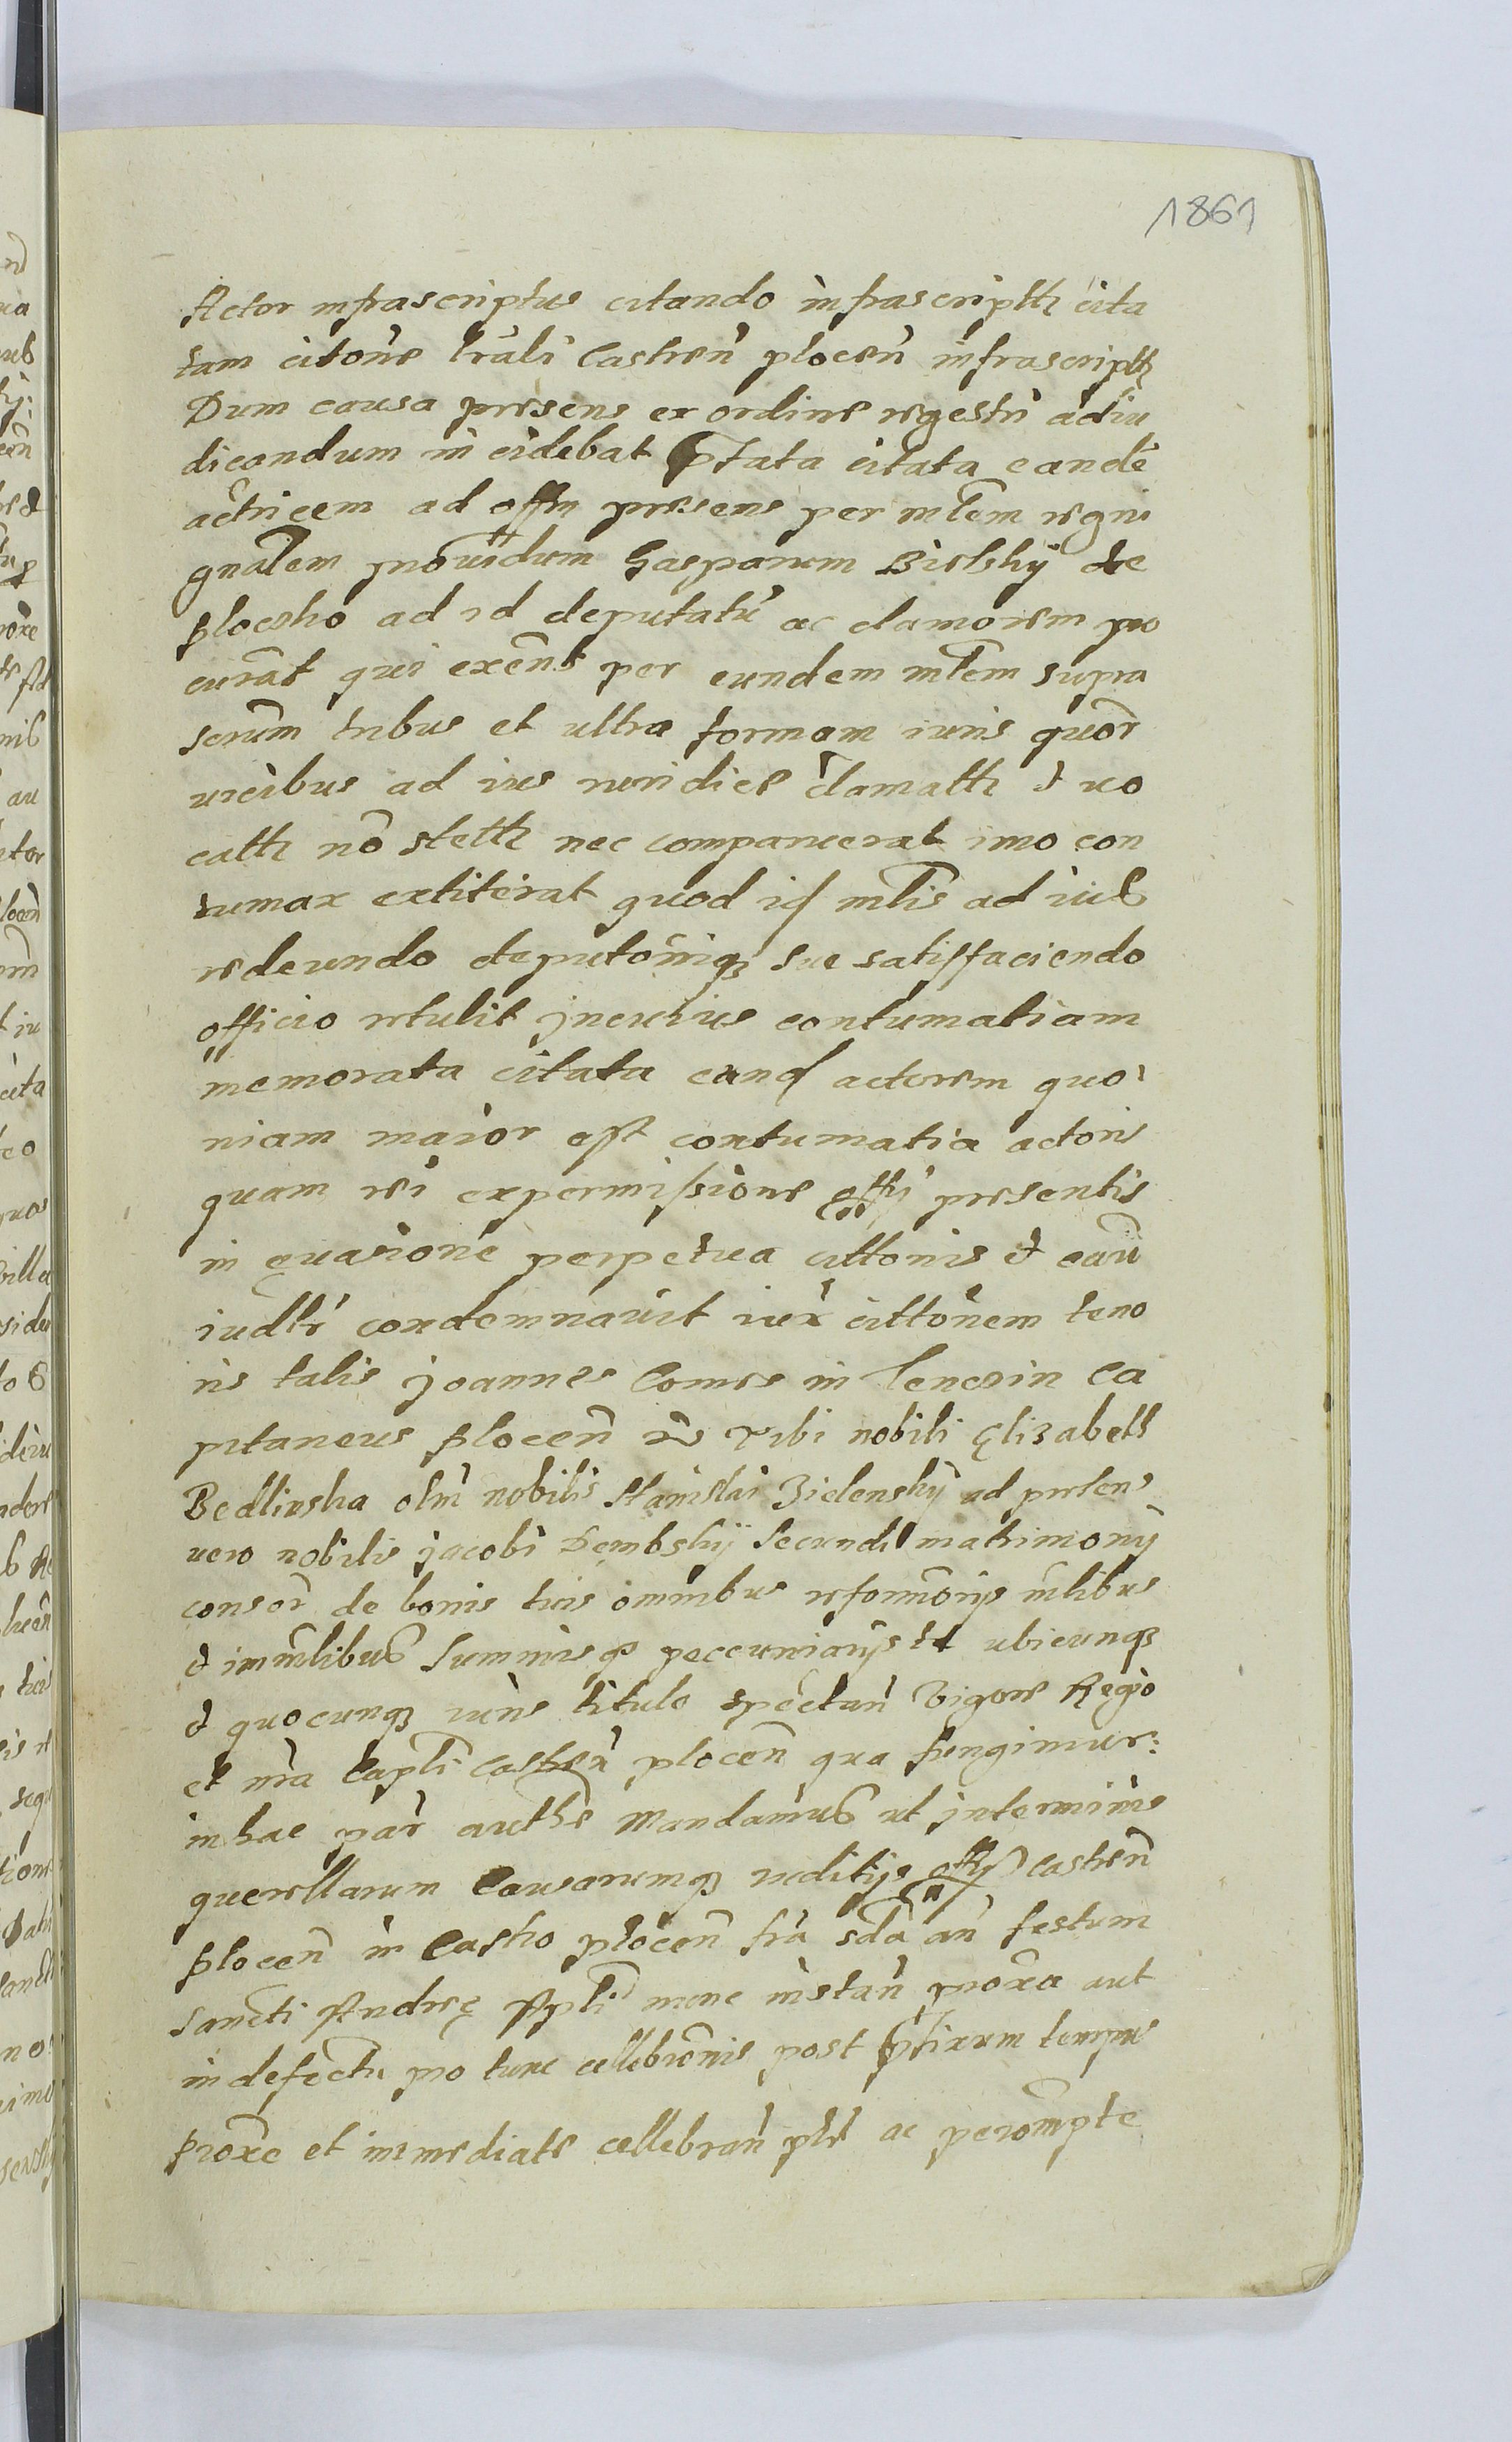 1861
Actor infrascriptus citando infrascriptħ cita
tam citoñe lrali Castreñ ploceñ infrascriptħ
Dum causa presens ex ordine regestri adiu
dicandum incidebat Ptata citata eandē
actricem ad offm presens per mlem regni
gnalem providum Gasparum Bielsky de
Ploczko ad id deputatū ac clamorem pro
curāt qui exens per eundem mlem supra
scrūm tribus et ultra formam iuris quor
vicibus ad ius iuridice clamatħ et vo
catħ nō stetħ nec comparuerat imo con
tumax extiterat quod id mlis ad iuđ
redeundo deputoniq sue satisfaciendo
officio retulit incuius contumatiam
memorata citata eand actorem quo
niam maior est contumatia actoris
quam rei expermissione offy presentis
in evasione perpetua cittonis et caū
iudlr condemnavit iux cittonem teno
ris talis Joannes Comes in Tenczin Ca
pitaneus Ploceñ Tibi nobili Elizabeth
Bedlinska olim nobilis Stanislai Bielensky ad presens
vero nobilis Jacobi Dembsky secundi matrimony
consor de bonis tuis omnibus mlibus
et immlibus summisq peccuniarys et ubicunq
et quocunq iuris titulo spectan Vigore Regio
et nra Capli Castreñ ploceñ qua fungimur:
in hac par authe Mandamus ut intermins
querellarum Causarumq offy castreñ
Ploceñ in Castro ploceñ fra sda an festum
Sancti Andreę Apli nunc instan proxa aut
in defectu pro tunc cellebronis post pfixum tempus
proxe et immediate cellebran ac perompte